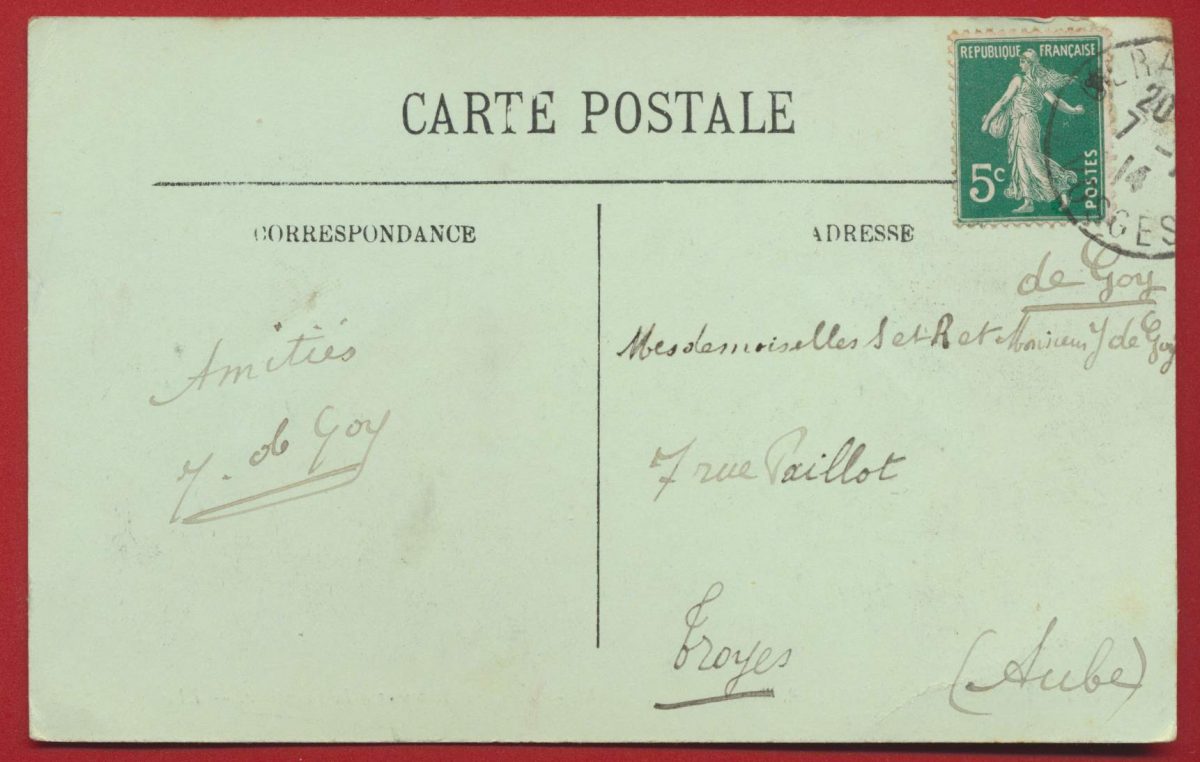 CARTE POSTALE
REPUBLIQUE FRANÇAISE
5c
POSTES
20
7 -
14
GES
CORRESPONDANCE
Amitiés
Y. de Goy
ADRESSE
de Goy
Mesdemoiselles S et R et Monsieur Y de Goy
7 rue Paillot
Troyes
(Aube)